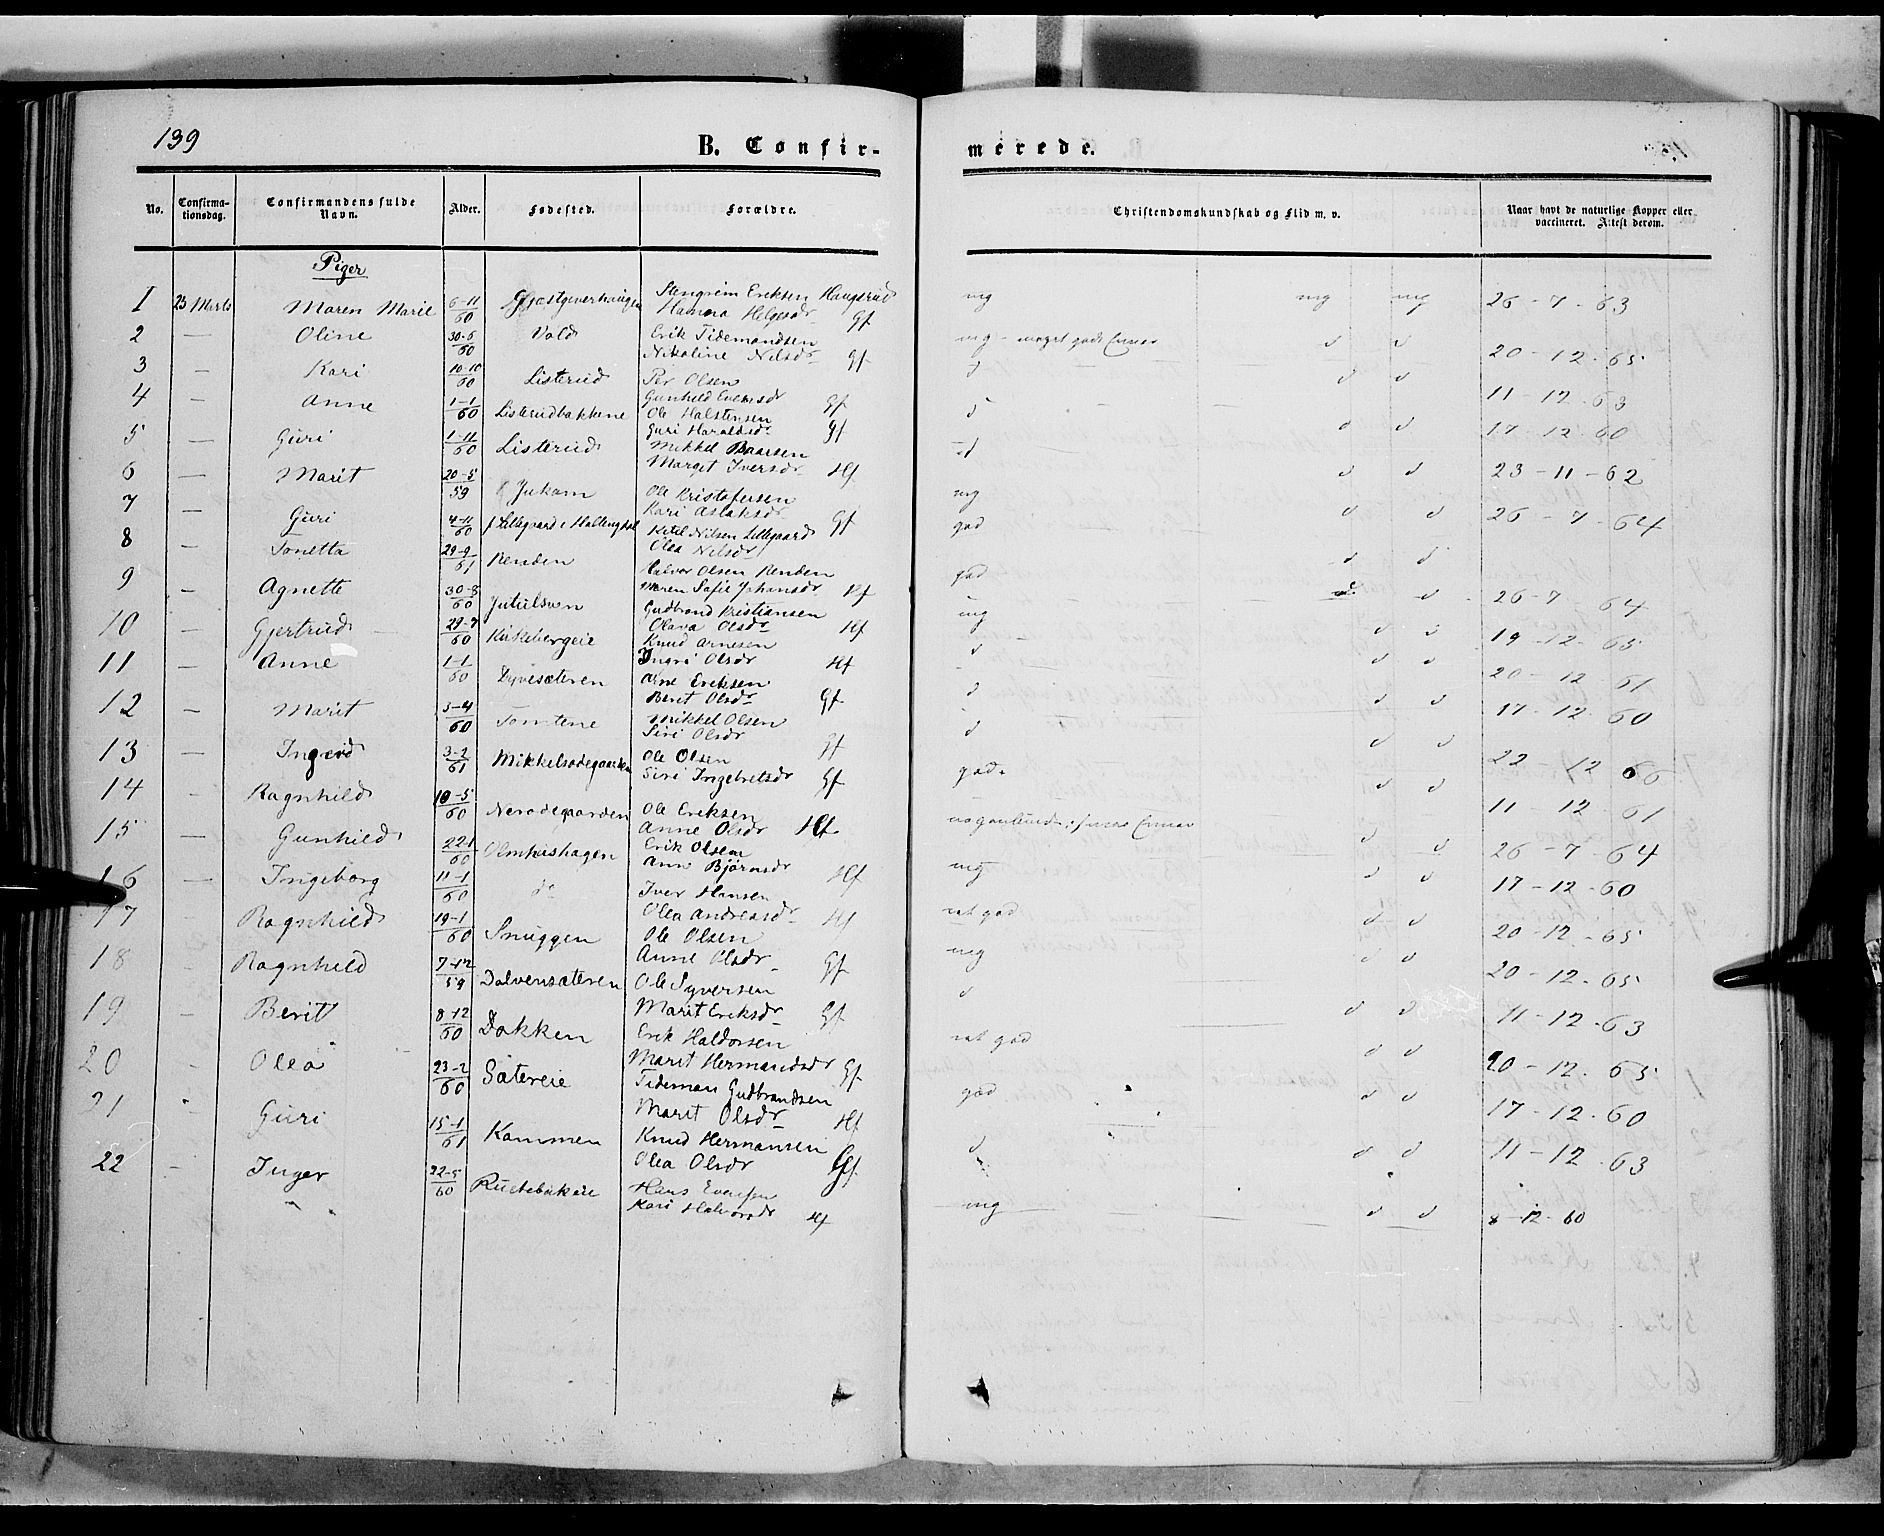 139
B. Confir-
merede.
No. Confirma-tionsdag. Confirmandens fulde Navn. Alder. Fødested. Forældre.
Christendomskundskab og Flid m. v. Naar havt de naturlige Kopper eller vaccineret. Attest derom.
Piger
1 25 Marts Maren Marie 6-11/60 Gjæstgiverhaugen Stengrim Eriksen Haugsrud
Helgesdr Gf mg mg mg 26-7-63
2 — Oline 30-6/60 Vold Erik Tidemandsen
Nikoline Nilsdr Gf mg - meget gode 20-12-65
3 — Kari 10-10/60 Listerud Per Olsen
Gunhild Evensdr Gf 11-12-63
4 — Anne 1-1/60 Listerudbakkene Ole Halstensen
Guri Haraldsdr Gf 17-12-60
5 — Guri 1-11/60 Listerud Mikkel Baarsen
Marget Iversdr Hf 23-11-62
6 — Marit 20-5/59 Jukam Ole Kristofersen
Kari Aslaksdr Gf mg 26-7-64
7 — Guri 4-11/60 Lillegaard i Hallingdal Ketil Nilsen Lillegaard
Olea Nilsdr god
8 — Tonetta 29-9/61 Renden Halvor Olsen Renden
Maren Sofie Johansdr god 26-7-64
9 — Agnette 30-8/60 Jutulsven Gudbrand Kristiansen
Olava Olsdr Hf mg 19-12-65
10 — Gjertrud 29-7/60 Kirkebergeie Knud Arnesen
Ingri Olsdr Hf 20-12-61
11 — Anne 1-1/60 Dyvesæteren Arne Eriksen
Berit Olsdr Gf 17-12-60
12 — Marit 3-4/60 Tomtene Mikkel Olsen
Siri Olsdr Gf 22-12-66
13 — Ingrid 3-2/61 Mikkelsødegaarden Ole Olsen
Siri Ingebretsdr Gf god 11-12-61
14 — Ragnhild 10-5/60 Nerødegaarden Ole Eriksen
Anne Olsdr Hf 26-7-64
15 — Gunhild 22-1/60 Olmhushagen Erik Olsen
Anne Bjørnsdr Hf mg 17-12-60
16 — Ingeborg 11-1/60 do Iver Hansen
Olea Andreasdr Hf ret god 20-12-65
17 — Ragnhild 19-1/60 Snuggen Ole Olsen
Anne Olsdr Gf mg 20-12-65
18 — Ragnhild 7-12/59 Dalvensæteren Ole Syversen
Marit Eriksdr Gf 11-12-63
19 — Berit 8-12/60 Dokken Erik Haldorsen
Marit Hermandsdr Gf ret god 20-12-65
20 — Olea 23-2/60 Sætereie Tideman Gudbrandsen
Marit Olsdr Hf god 17-12-60
21 — Guri 15-1/61 Kammen Knud Hermansen
Olea Olsdr Gf 11-12-63
22 — Inger 22-5/60 Hans Evensen
Kari Halvorsdr Hf mg 8-12-60